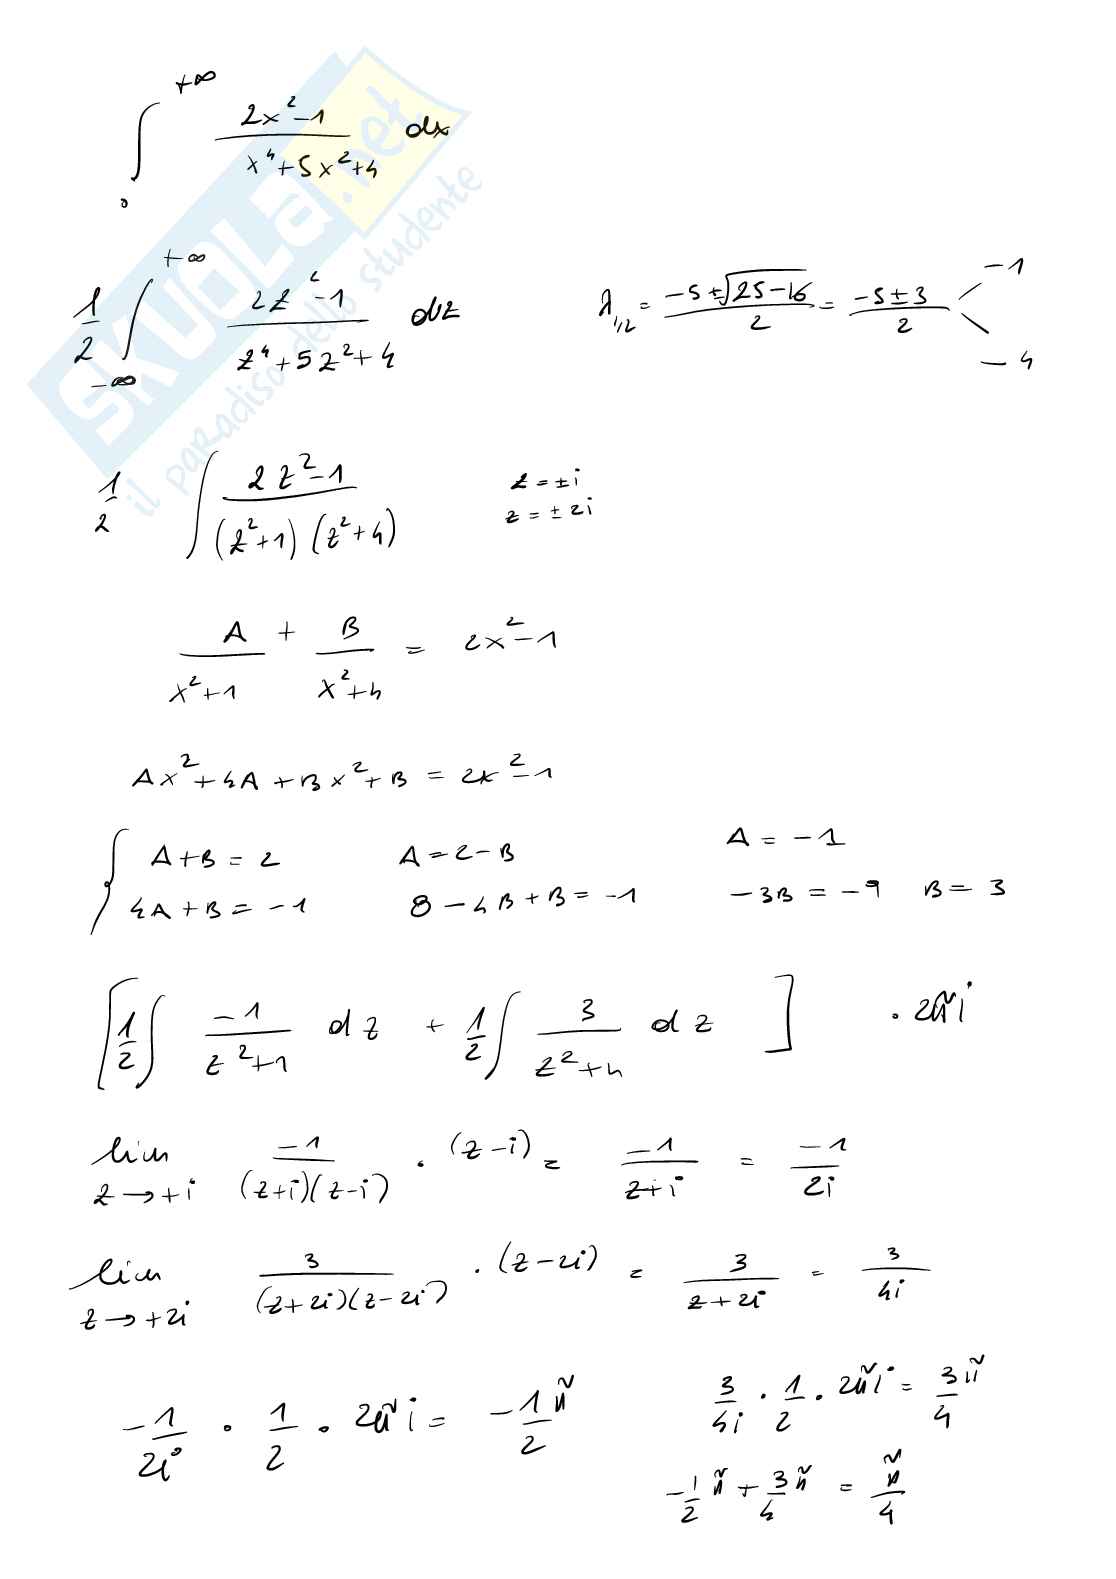 SKUOLA.net
il paradiso dello studente
∫₀^{+∞} (2x²-1)/(x⁴+5x²+4) dx
1/2 ∫_{-∞}^{+∞} (2z²-1)/(z⁴+5z²+4) dz    λ_{1/2} = (-5±√(25-16))/2 = (-5±3)/2 -1 -4
1/2 ∫ (2z²-1)/((z²+1)(z²+4))    z=±i
z=±2i
A/(x²+1) + B/(x²+4) = 2x²-1
Ax²+4A+Bx²+B = 2x²-1
{ A+B=2    A=2-B    A=-1
4A+B=-1    8-4B+B=-1    -3B=-9    B=3
[1/2 ∫ -1/(z²+1) dz + 1/2 ∫ 3/(z²+4) dz] · 2πi
lim z→+i -1/((z+i)(z-i)) · (z-i) = -1/(z+i) = -1/2i
lim z→+2i 3/((z+2i)(z-2i)) · (z-2i) = 3/(z+2i) = 3/4i
-1/2i · 1/2 · 2πi = -1/2 π    3/4i · 1/2 · 2πi = 3π/4
-1/2 π + 3/4 π = π/4